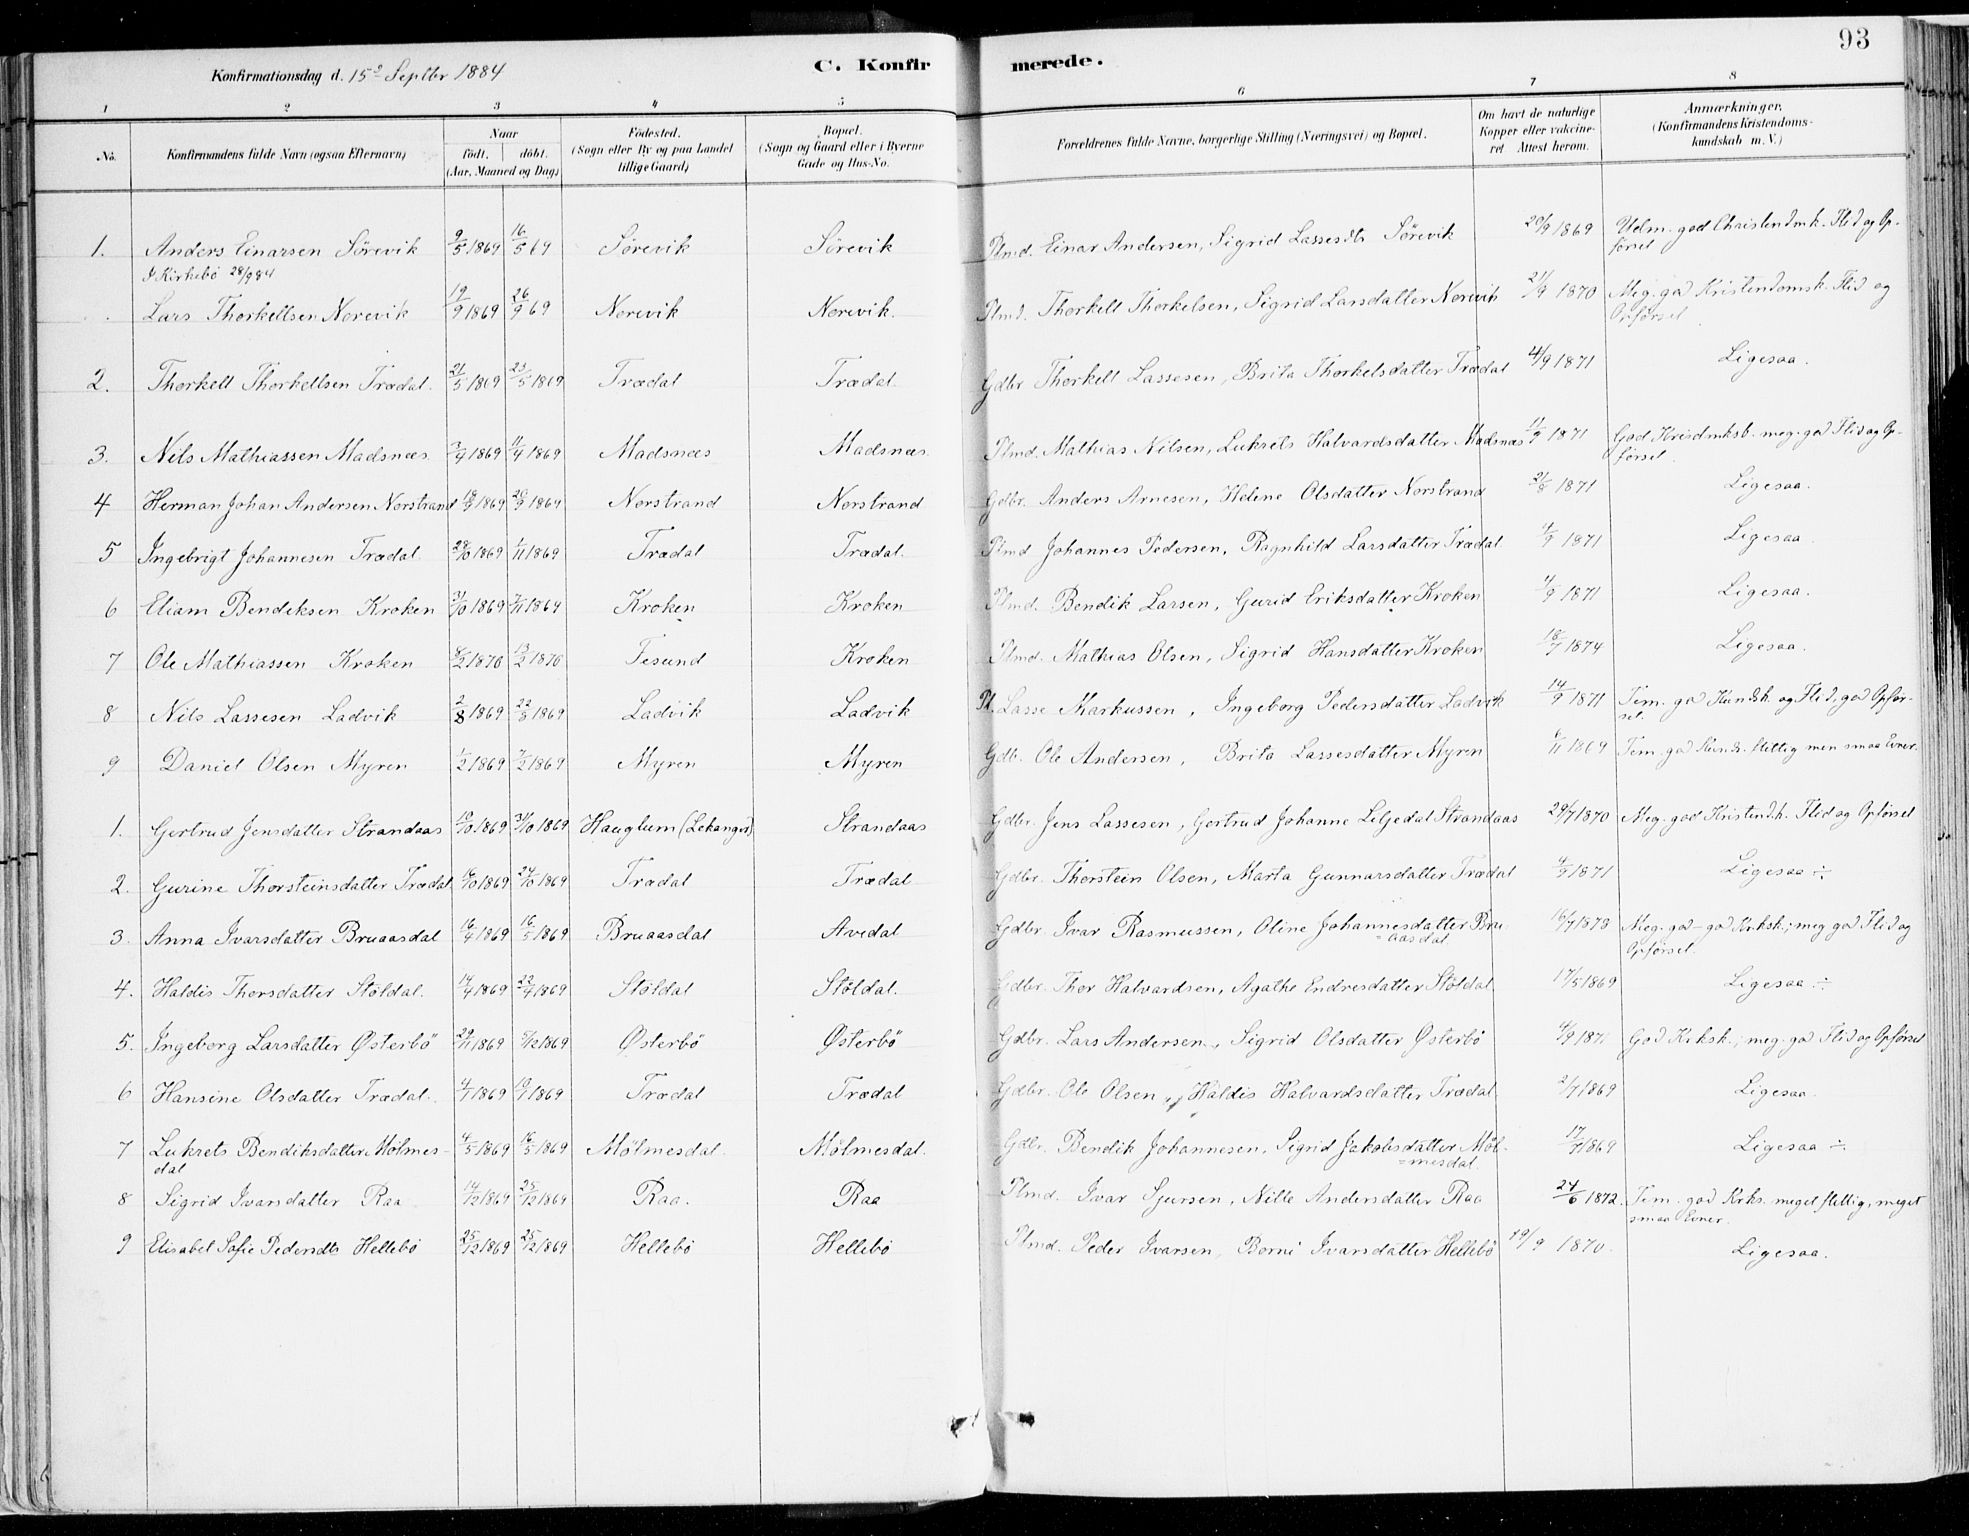 93
Konfirmationsdag d. 15de Septbr 1884
C. Konfirmerede.
1 2 3 4 5 6 7 8
No. Konfirmandens fulde Navn (ogsaa Efternavn) Naar født. døbt. (Aar, Maaned og Dag.) Fødested. (Sogn eller By og paa Landet tillige Gaard) Bopæl. (Sogn og Gaard eller i Byerne Gade og Hus-No. Forældrenes fulde Navne, borgerlige Stilling (Næringsvei) og Bopæl. Om havt de naturlige Kopper eller vakcineret Attest herom. Anmærkninger. (Konfirmandens Kristendomskundskab m. V.)
1. Anders Einarsen Sörevik 9/5 1869 16/5 69 Sörevik Sörevik Plmd. Einar Andersen, Sigrid Lassesdtr Sörevik 20/9 1869 Udm. god Christendmk. Flid og Opförsel
I Kirkebö 28/9 84
Lars Thorkellsen Norevik 19/9 1869 26/9 69 Norevik Norevik. Plmd. Thorkell Thorkelsen, Sigrid Larsdatter Norevik 21/9 1870 Meg. god Kristendomsk. Flid og Opförsel
2. Thorkell Thorkellsen Trædal. 21/5 1869 23/5 1869 Trædal Trædal Gdbr Thorkell Lassesen, Brita Thorkelsdatter Trædal 4/9 1871 Ligesaa.
3. Nils Mathiassen Madsnæs 3/4 1869 11/4 1869 Madsnæs Madsnæs Plmd. Mathias Nilsen, Lukrets Halvardsdatter Madsnæs 11/9 1871 God Krisdmksb. meg. god Flid og Opförsel
4 Herman Johan Andersen Norstrand 18/9 1869 26/9 1869 Norstrand Norstrand Gdbr. Anders Arnesen, Helene Olsdatter Norstrand 21/8 1871 Ligesaa.
5 Ingebrigt Johannesen Trædal 28/10 1869 1/11 1869 Trædal Trædal. Plmd Johannes Pedersen, Ragnhild Larsdatter Trædal 4/9 1871 Ligesaa.
6 Eliam Bendiksen Kroken 31/10 1869 7/11 1869 Kroken Kroken Plmd. Bendik Larsen, Gurid Eriksdatter Kroken 4/9 1871 Ligesaa.
7 Ole Mathiassen Kroken 6/2 1870 13/2 1870 Tesund Kroken Plmd. Mathias Olsen, Sigrid Hansdatter Kroken 18/7 1874 Ligesaa.
8 Nils Lassesen Ladvik 2/8 1869 22/8 1869 Ladvik Ladvik Pl. Lasse Markussen, Ingeborg Pedersdatter Ladvik 14/9 1871 Tem. god Kundsk. og Flid, god Opförsel.
9 Daniel Olsen Myren 1/2 1869 7/2 1869 Myren Myren Gdb. Ole Andersen, Brita Lassesdatter Myren 6/11 1869 Tem. god Kunds. flittig men smaa Evner.
1. Gertrud Jensdatter Strandaas 10/10 1869 31/10 1869 Hauglum (Lekanger) Strandaas Gdbr. Jens Lassesen, Gertrud Johanne Leljedal Strandaas 29/7 1870 Meg. god Kristendk. Flid og Opförsel
2. Gurine Thorsteinsdatter Trædal 16/10 1869 24/10 1869 Trædal Trædal Gdbr. Thorstein Olsen, Marta Gunnarsdatter Trædal 4/9 1871 Ligesaa ÷
3. Anna Ivarsdatter Bruaasdal 16/4 1869 16/5 1869 Bruaasdal Avedal Gdbr Ivar Rasmussen, Oline Johannesdatter Bruaasdal 16/7 1878 Meg. god - god Krksk.; meg god Flid og Opförsel.
4. Haldis Thorsdatter Stöldal. 14/4 1869 22/4 1869 Stöldal Stöldal. Gdbr. Thor Halvardsen, Agathe Endresdatter Stöldal 17/5 1869 Ligesaa ÷
5. Ingeborg Larsdatter Østerbö 29/11 1869 5/12 1869 Østerbö Østerbö Gdbr. Lars Andersen, Sigrid Olsdatter Østerbö 4/9 1871 God Krksk.; meg. god Flid og Opförsel
6 Hansine Olsdatter Trædal. 4/7 1869 18/7 1869 Trædal Trædal Gdbr. Ole Olsen, Haldis Halvardsdatter Trædal 2/7 1869 Ligesaa.
7 Lukrets Bendiksdatter Mölmesdal 4/5 1869 16/5 1869 Mölmesdal. Mölmesdal. Gdbr. Bendik Johannesen, Sigrid Jakobsdatter Mölmesdal. 17/9 1869 Ligesaa ÷
8 Sigrid Ivarsdatter Raa 14/12 1869 25/12 1869 Raa. Raa Plmd. Ivar Sjursen, Nille Andersdatter Raa 24/6 1872. Tem. god Krks. meget flittig, meget smaa Evner.
9 Elisabet Sofie Pedersdtr Hellebö 25/12 1869 25/12 1869 Hellebö Hellebö Plmd. Peder Ivarsen, Borni Ivarsdatter Hellebö 19/9 1870. Ligesaa.